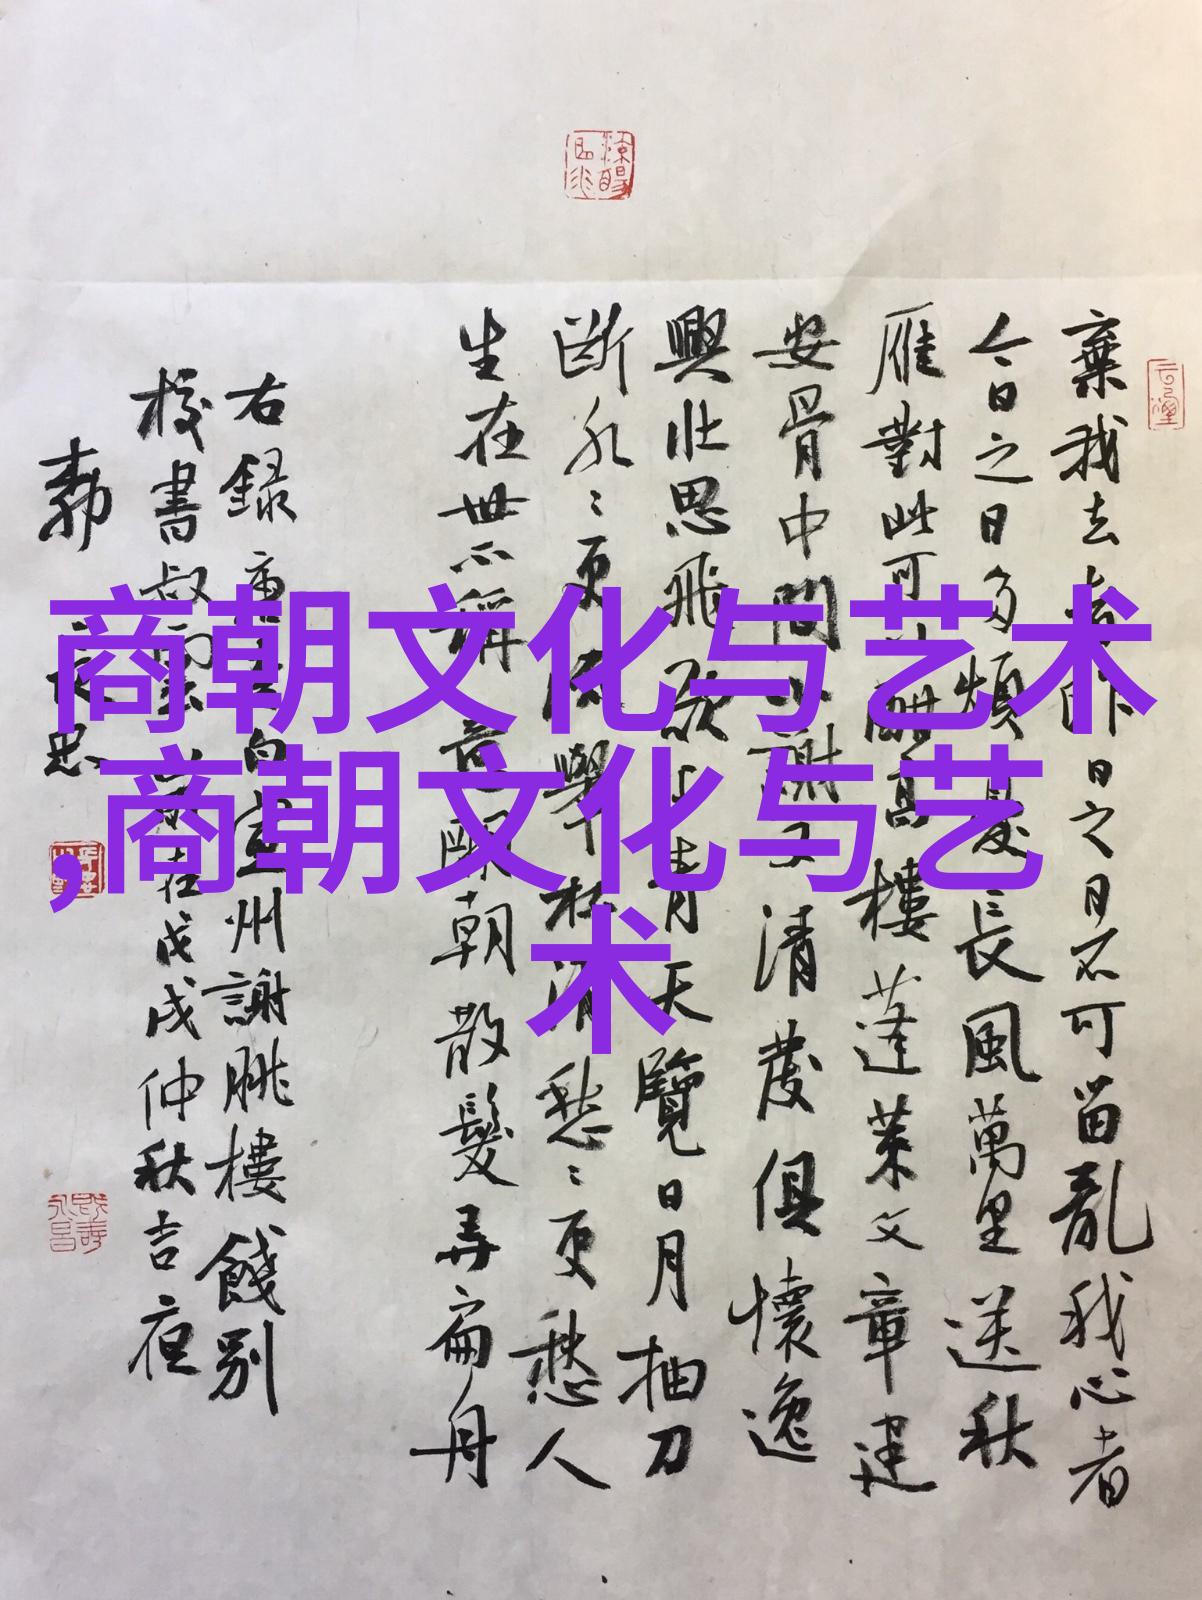 商朝文化与艺术
,商朝文化与艺
术
棄我去者昨日之日不可留亂我心者
今日之日多煩憂長風萬里送秋
雁對此可以酣高樓蓬萊文章建
安骨中間小謝又清發俱懷逸
興壯思飛欲上青天覽日月抽刀
斷水〻更流舉杯消愁〻更愁人
生在世不稱意明朝散髮弄扁舟
右録唐李白宣州謝朓樓餞別
校書叔雲在戊戌仲秋吉夜